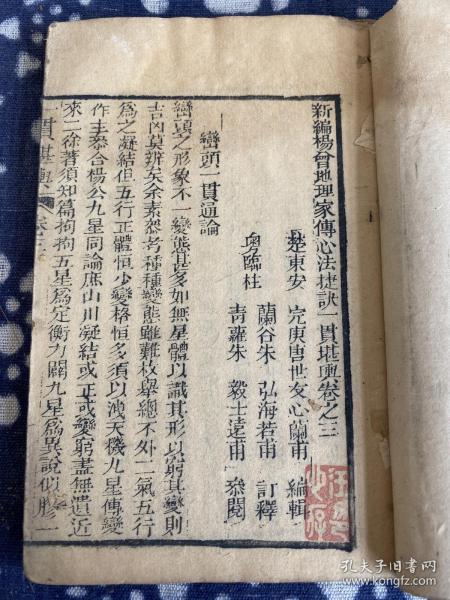 新編楊曾地理家傳心法捷訣一貫堪輿卷之三
楚東安 完庚唐世友心蘭甫 編輯
粵臨桂 蘭谷朱 弘海若甫 訂釋
青蘿朱 毅士遠甫 叅閱
巒頭一貫通論
巒頭之形象不一變態甚多如無星體以識其形以窮其變則
吉凶莫辨矣余素叅考種種變態雖難枚舉總不外二氣五行
為之凝結但五行正體恒少變格恒多須以洩天機九星傳變
作主叅合楊公九星同論庶山川凝結或正或變窮盡無遺近
來二徐著須知篇拘拘五星為定衡力闢九星為異說似膠一
一貫堪輿 卷三
孔夫子旧书网